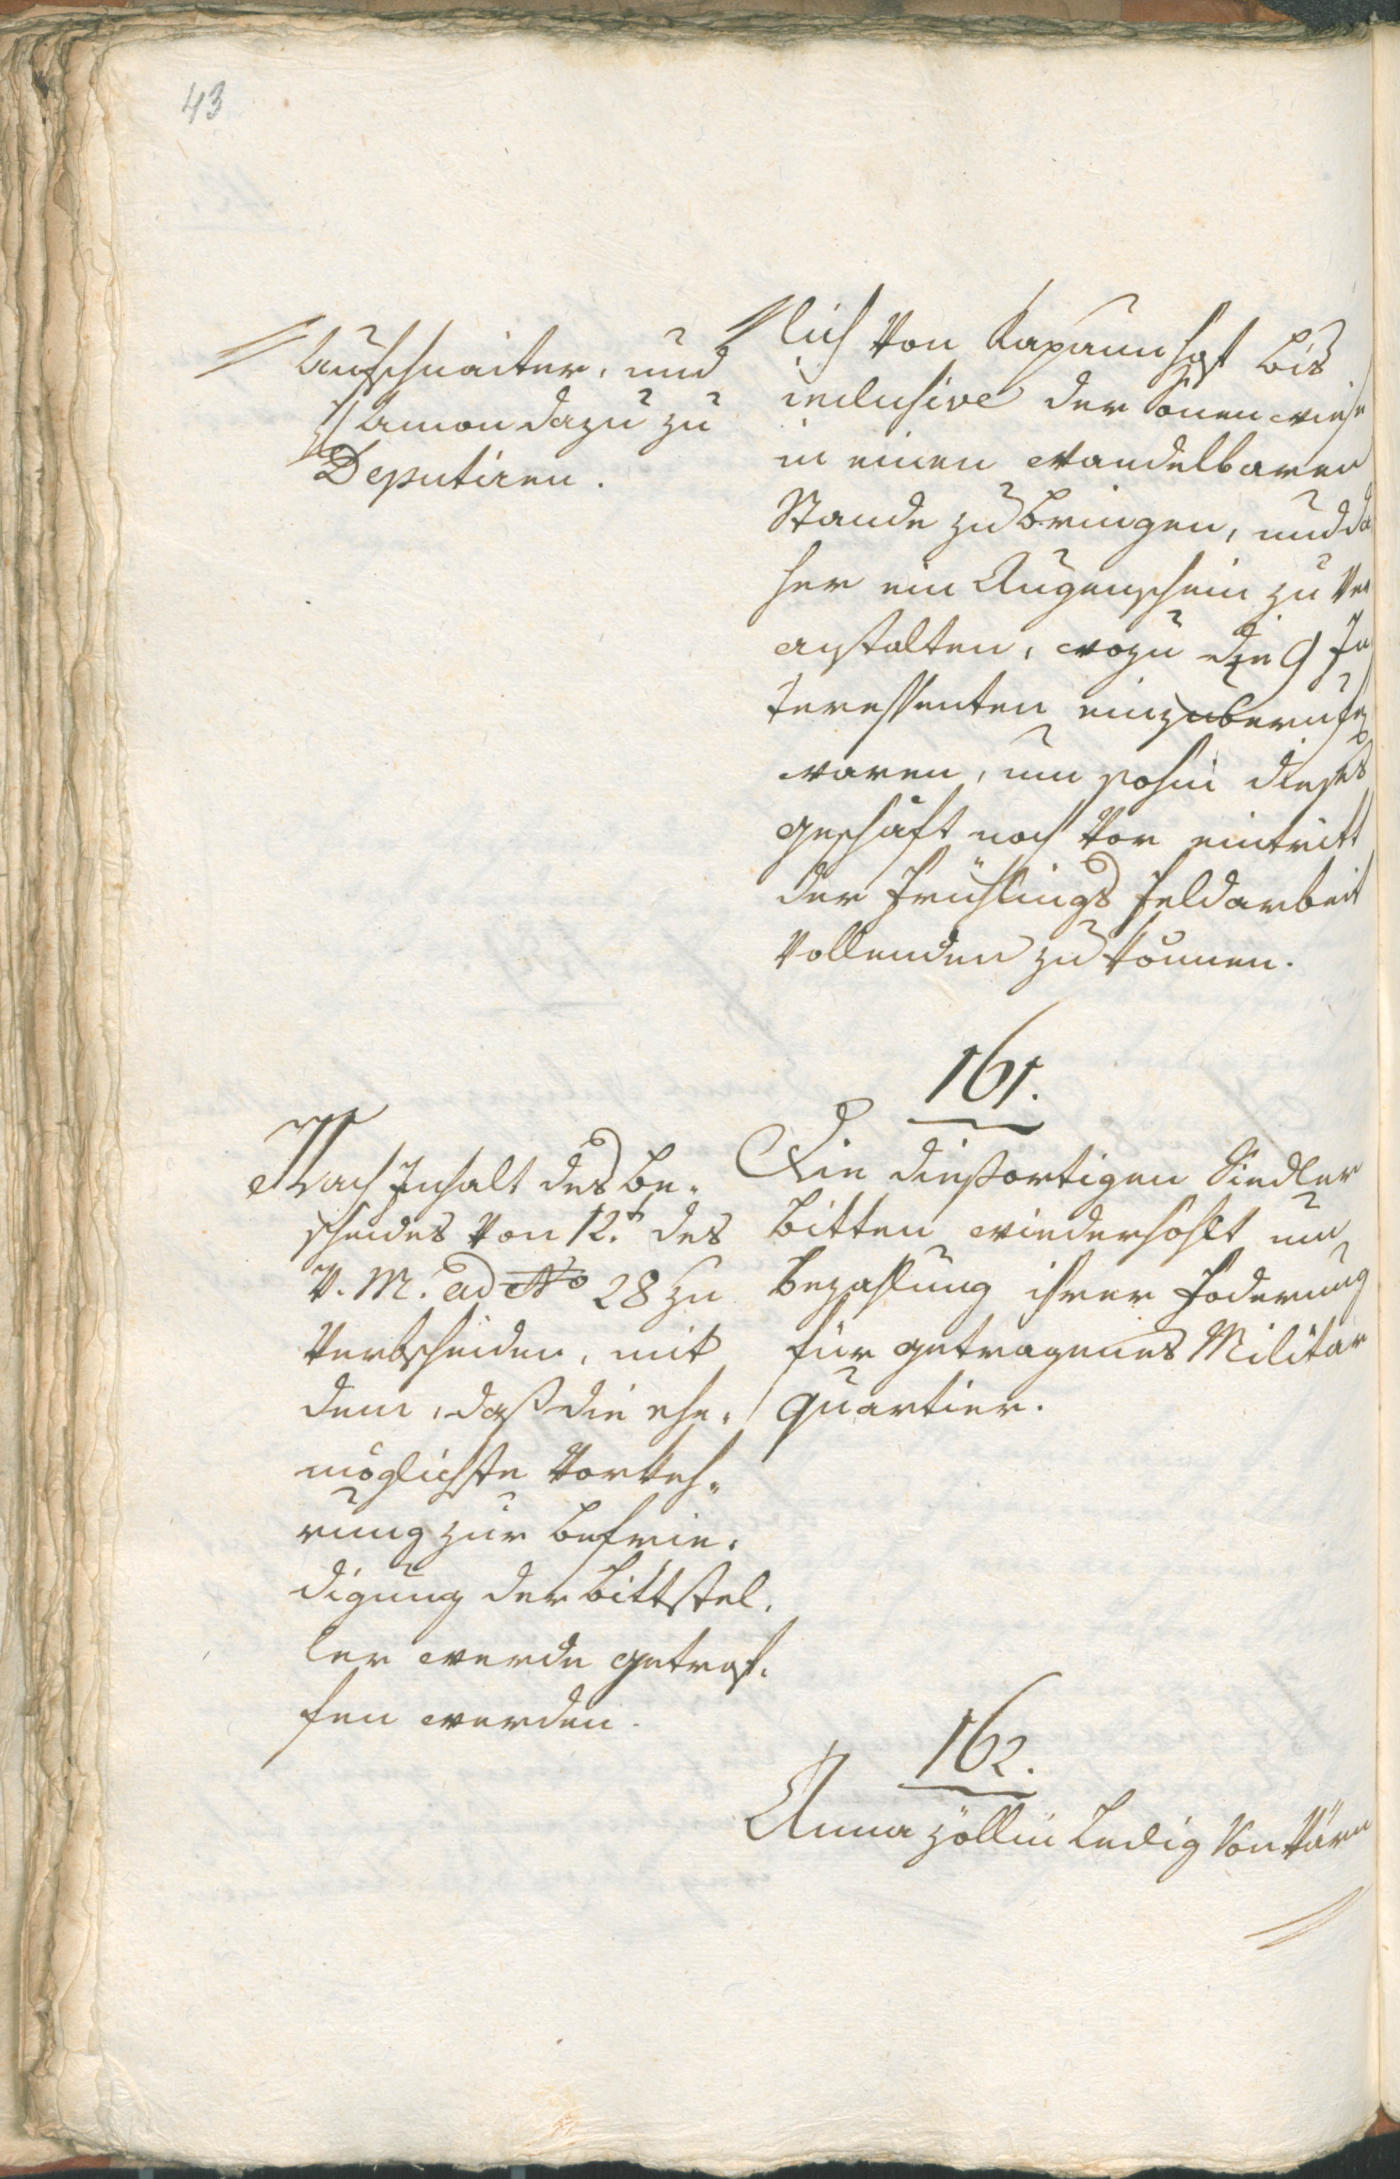 43
Aufschnaiter, und
Amon dazu zu
Deputiren.
lich von Kapaunhof bis
inclusive der Sonenwiese
in einen wandelbaren
Stande zu bringen, und da
her ein Augenschein zu ver
anstalten, wozu die 9 In
teressenten einzuberufen
waren, um sohin dieses
geschäft noch vor eintritt
der Frühlings Feldarbeit
Vollenden zu können.
161.
Nach Inhalt des Be-
scheides von 12.t des
V. M. ad No 28 zu
Verbscheiden, mit
dem, daß die ehe-
möglichste Vorkeh-
rung zur Befrie-
digung der Bittstel-
ler werde getrof-
fen werden.
Die dießortigen Siedler
Bitten wiederhohlt um
Bezahlung ihrer Foderung
für getragenes Militar
Quartier.
162.
Anna Zöllin Ledig von